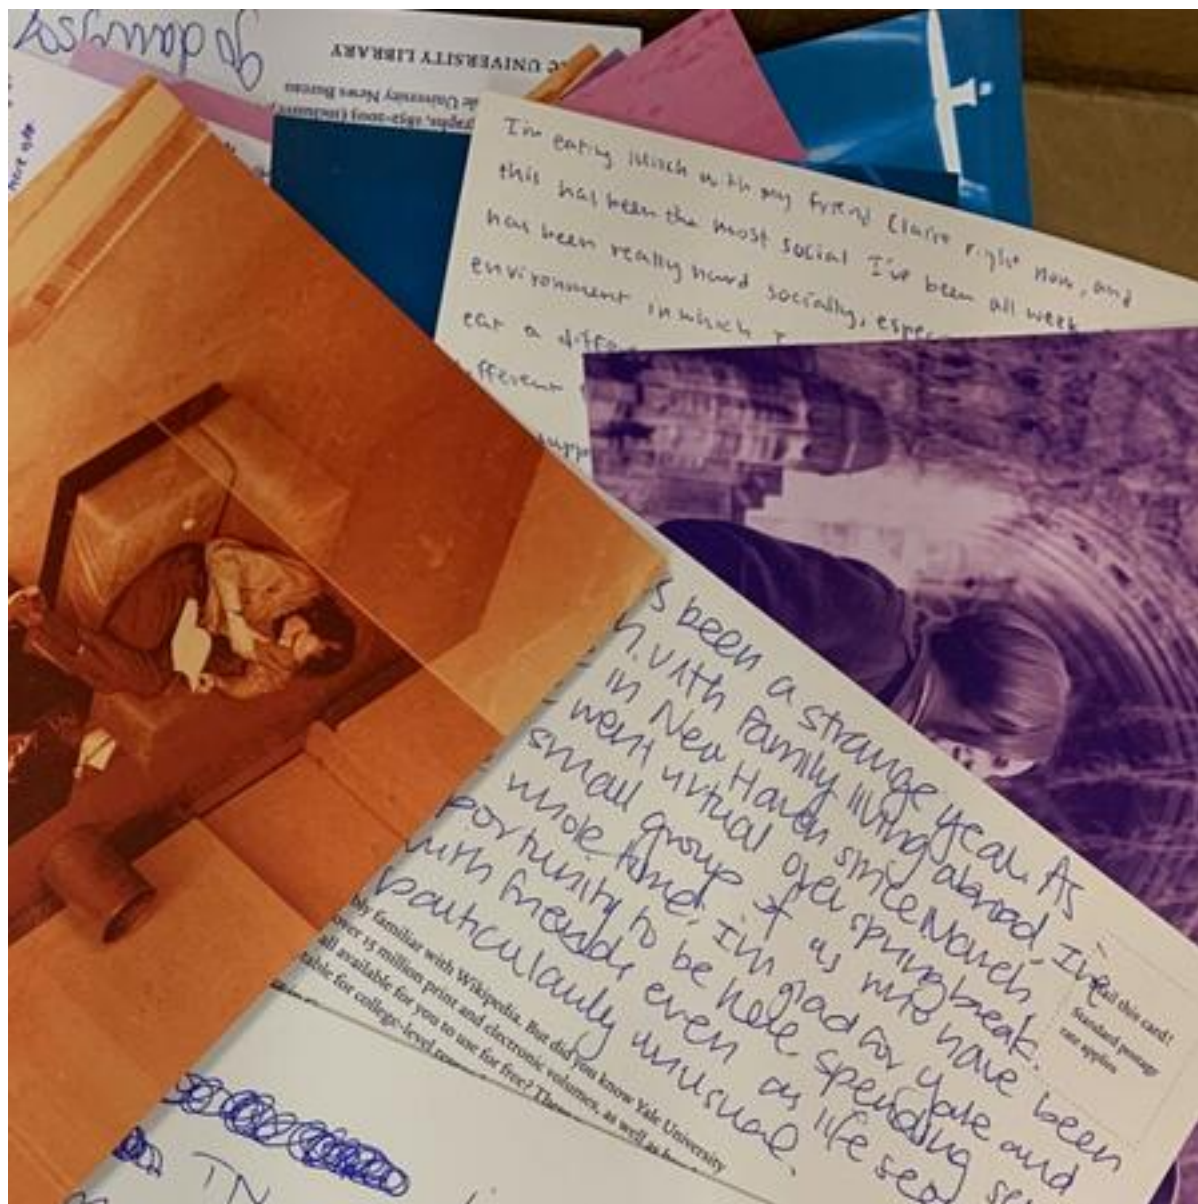 go dawgs
UNIVERSITY LIBRARY
Yale University News Bureau
1852-2005 (inclusive)
here
I'm eating lunch with my friend Claire right now, and
this has been the most social I've been all week.
has been really hard socially, espec
environment in which I
eat a diffe
fferent
supp
s been a strange year. As
with family living abroad, I've
in New Haven since March
went virtual over spring break.
small group of us who have been
whole time, I'm glad for Yale and
portunity to be here, spending
with friends, even as life
particularly unusual.
ail this card!
Standard postage
rate applies
bly familiar with Wikipedia. But did you know Yale University
over 15 million print and electronic volumes, as well as
all available for you to use for free? These
table for college-level
TN